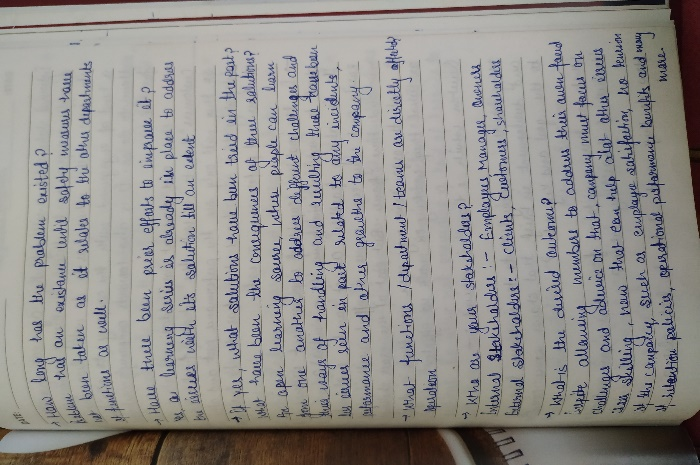 DATE
→ How long has the problem existed?
has an existance until safety measures have
been taken as it relates to the other departments
& functions as well.
→ Have there been prior efforts to improve it?
as a learning series is already in place to address
the issues with its solution till an extent
→ If yes, what solutions have been tried in the past?
What have been the consequences of these solutions?
An open learning source where people can learn
from one another to address different challenges and
their ways of handling and resulting there have been
issues seen in past related to any incidents,
performance and other growths to the company.
→ What functions / department / teams are directly affected?
Operation
→ Who are your stakeholders?
Internal Stakeholders :- Employees, Managers
External Stakeholders :- Clients, Customers, shareholders
→ What is the desired outcome?
inspite allowing members to address their own faced
challenges and advice on that company must focus on
skilling, now that can help alot other issues
of the company, such as employee satisfaction, no tension
of retention policies, operational performance benefits and many
more.